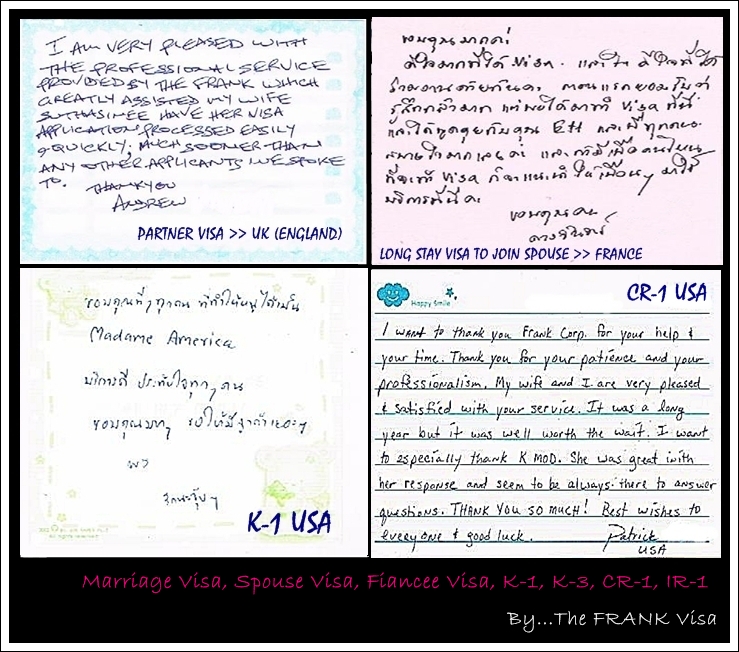 I AM VERY PLEASED WITH
THE PROFESSIONAL SERVICE
PROVIDED BY THE FRANK WHICH
GREATLY ASSISTED MY WIFE
SUTHASINEE HAVE HER VISA
APPLICATION PROCESSED EASILY
& QUICKLY, MUCH SOONER THAN
ANY OTHER APPLICANTS WE SPOKE
TO.
THANK YOU
ANDREW
PARTNER VISA >> UK (ENGLAND)
ขอบคุณมากค่ะ
ดีใจมากที่ได้ Visa. และ ดีใจที่ได้
ร่วมงานด้วยกันค่ะ ตอนแรกยอมรับว่า
รู้สึกกลัวมาก แต่พอได้มาทำ Visa ที่นี่
และได้พูดคุยกับคุณ และพี่ทุกคน
สบายใจมากเลยค่ะ และถ้ามีเพื่อนคนไหน
ที่จะทำ Visa ก็จะแนะนำให้เพื่อนๆ มาใช้
บริการที่นี่ค่ะ
ขอบคุณค่ะ
LONG STAY VISA TO JOIN SPOUSE >> FRANCE
ขอบคุณพี่ๆทุกคน ที่ทำให้หนูได้เป็น
Madame America
บริการดี ประทับใจทุกๆคน
ขอบคุณมากๆ ขอให้มีลูกค้าเยอะๆ
K-1 USA
Happy Smile
CR-1 USA
I want to thank you Frank Corp. for your help &
your time. Thank you for your patience and your
professionalism. My wife and I are very pleased
& satisfied with your service. It was a long
year but it was well worth the wait. I want
to especially thank K MOD. She was great with
her response and seem to be always there to answer
questions. THANK YOU SO MUCH! Best wishes to
everyone & good luck. Patrick
USA
Marriage Visa, Spouse Visa, Fiancee Visa, K-1, K-3, CR-1, IR-1
By...The FRANK Visa